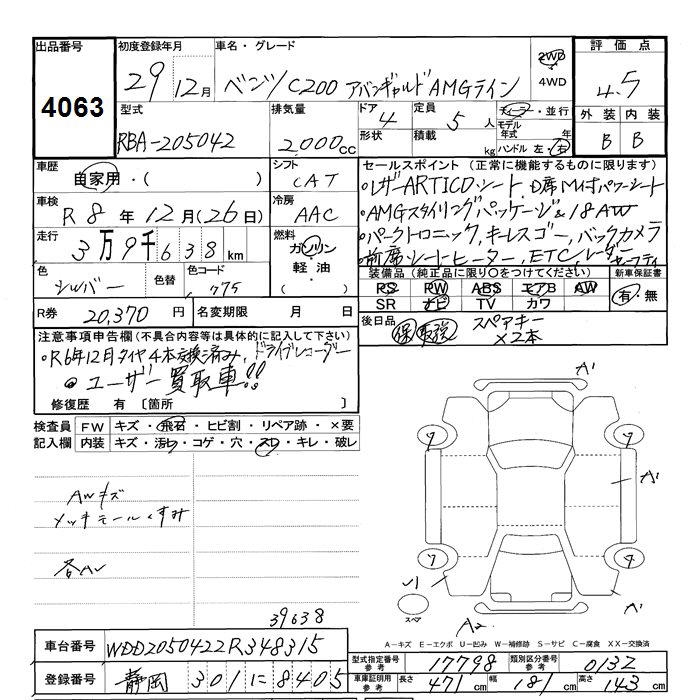 出品番号 初度登録年月 車名・グレード 評価点
4063 29年12月 ベンツC200 アバンギャルド AMGライン 2WD・4WD 4.5
型式 排気量 ドア 定員 ディーラー・並行 外装 内装
RBA-205042 2,000cc 4 5人 モデル年式 年 B B
形状 積載 kg ハンドル 左・右
車歴 シフト セールスポイント (正常に機能するものに限ります)
自家用・( ) CAT ・レザーARTICOシート,D席M付パワーシート
車検 冷房 ・AMGスタイリングパッケージ&18AW
R8年12月(26日) AAC ・パークトロニック,キーレスゴー,バックカメラ
走行 燃料 ・前席シートヒーター,ETC,レーダーセーフティ
3万9千638km ガソリン・軽油・( )
装備品(純正品に限り○をつけてください) 新車保証書
色 色替 色コード PS PW ABS エアB AW 有・無
シルバー 775 SR ナビ TV カワ
R券 20,370円 名変期限 月 日 後日品 保 取説 スペアキー×2本
注意事項申告欄(不具合内容等は具体的に記入して下さい)
・R6年12月タイヤ4本交換済み,ドライブレコーダー
・ユーザー買取車!!
修復歴 有〔箇所 〕
検査員 FW キズ・飛石・ヒビ割・リペア跡・×要
記入欄 内装 キズ・汚レ・コゲ・穴・スレ・キレ・破レ
A1
7 7
AWキズ
メッキモールくすみ
A1
各AU
7 4
スペア
39638
A2
A-キズ E-エクボ U-凹み W-補修跡 S-サビ C-腐食 XX-交換済
車台番号 WDD2050422R348315
型式指定番号参考 17798 類別区分番号参考 0132
登録番号 静岡 301に8405
車庫証明用参考 長さ 471cm 幅 181cm 高さ 143cm